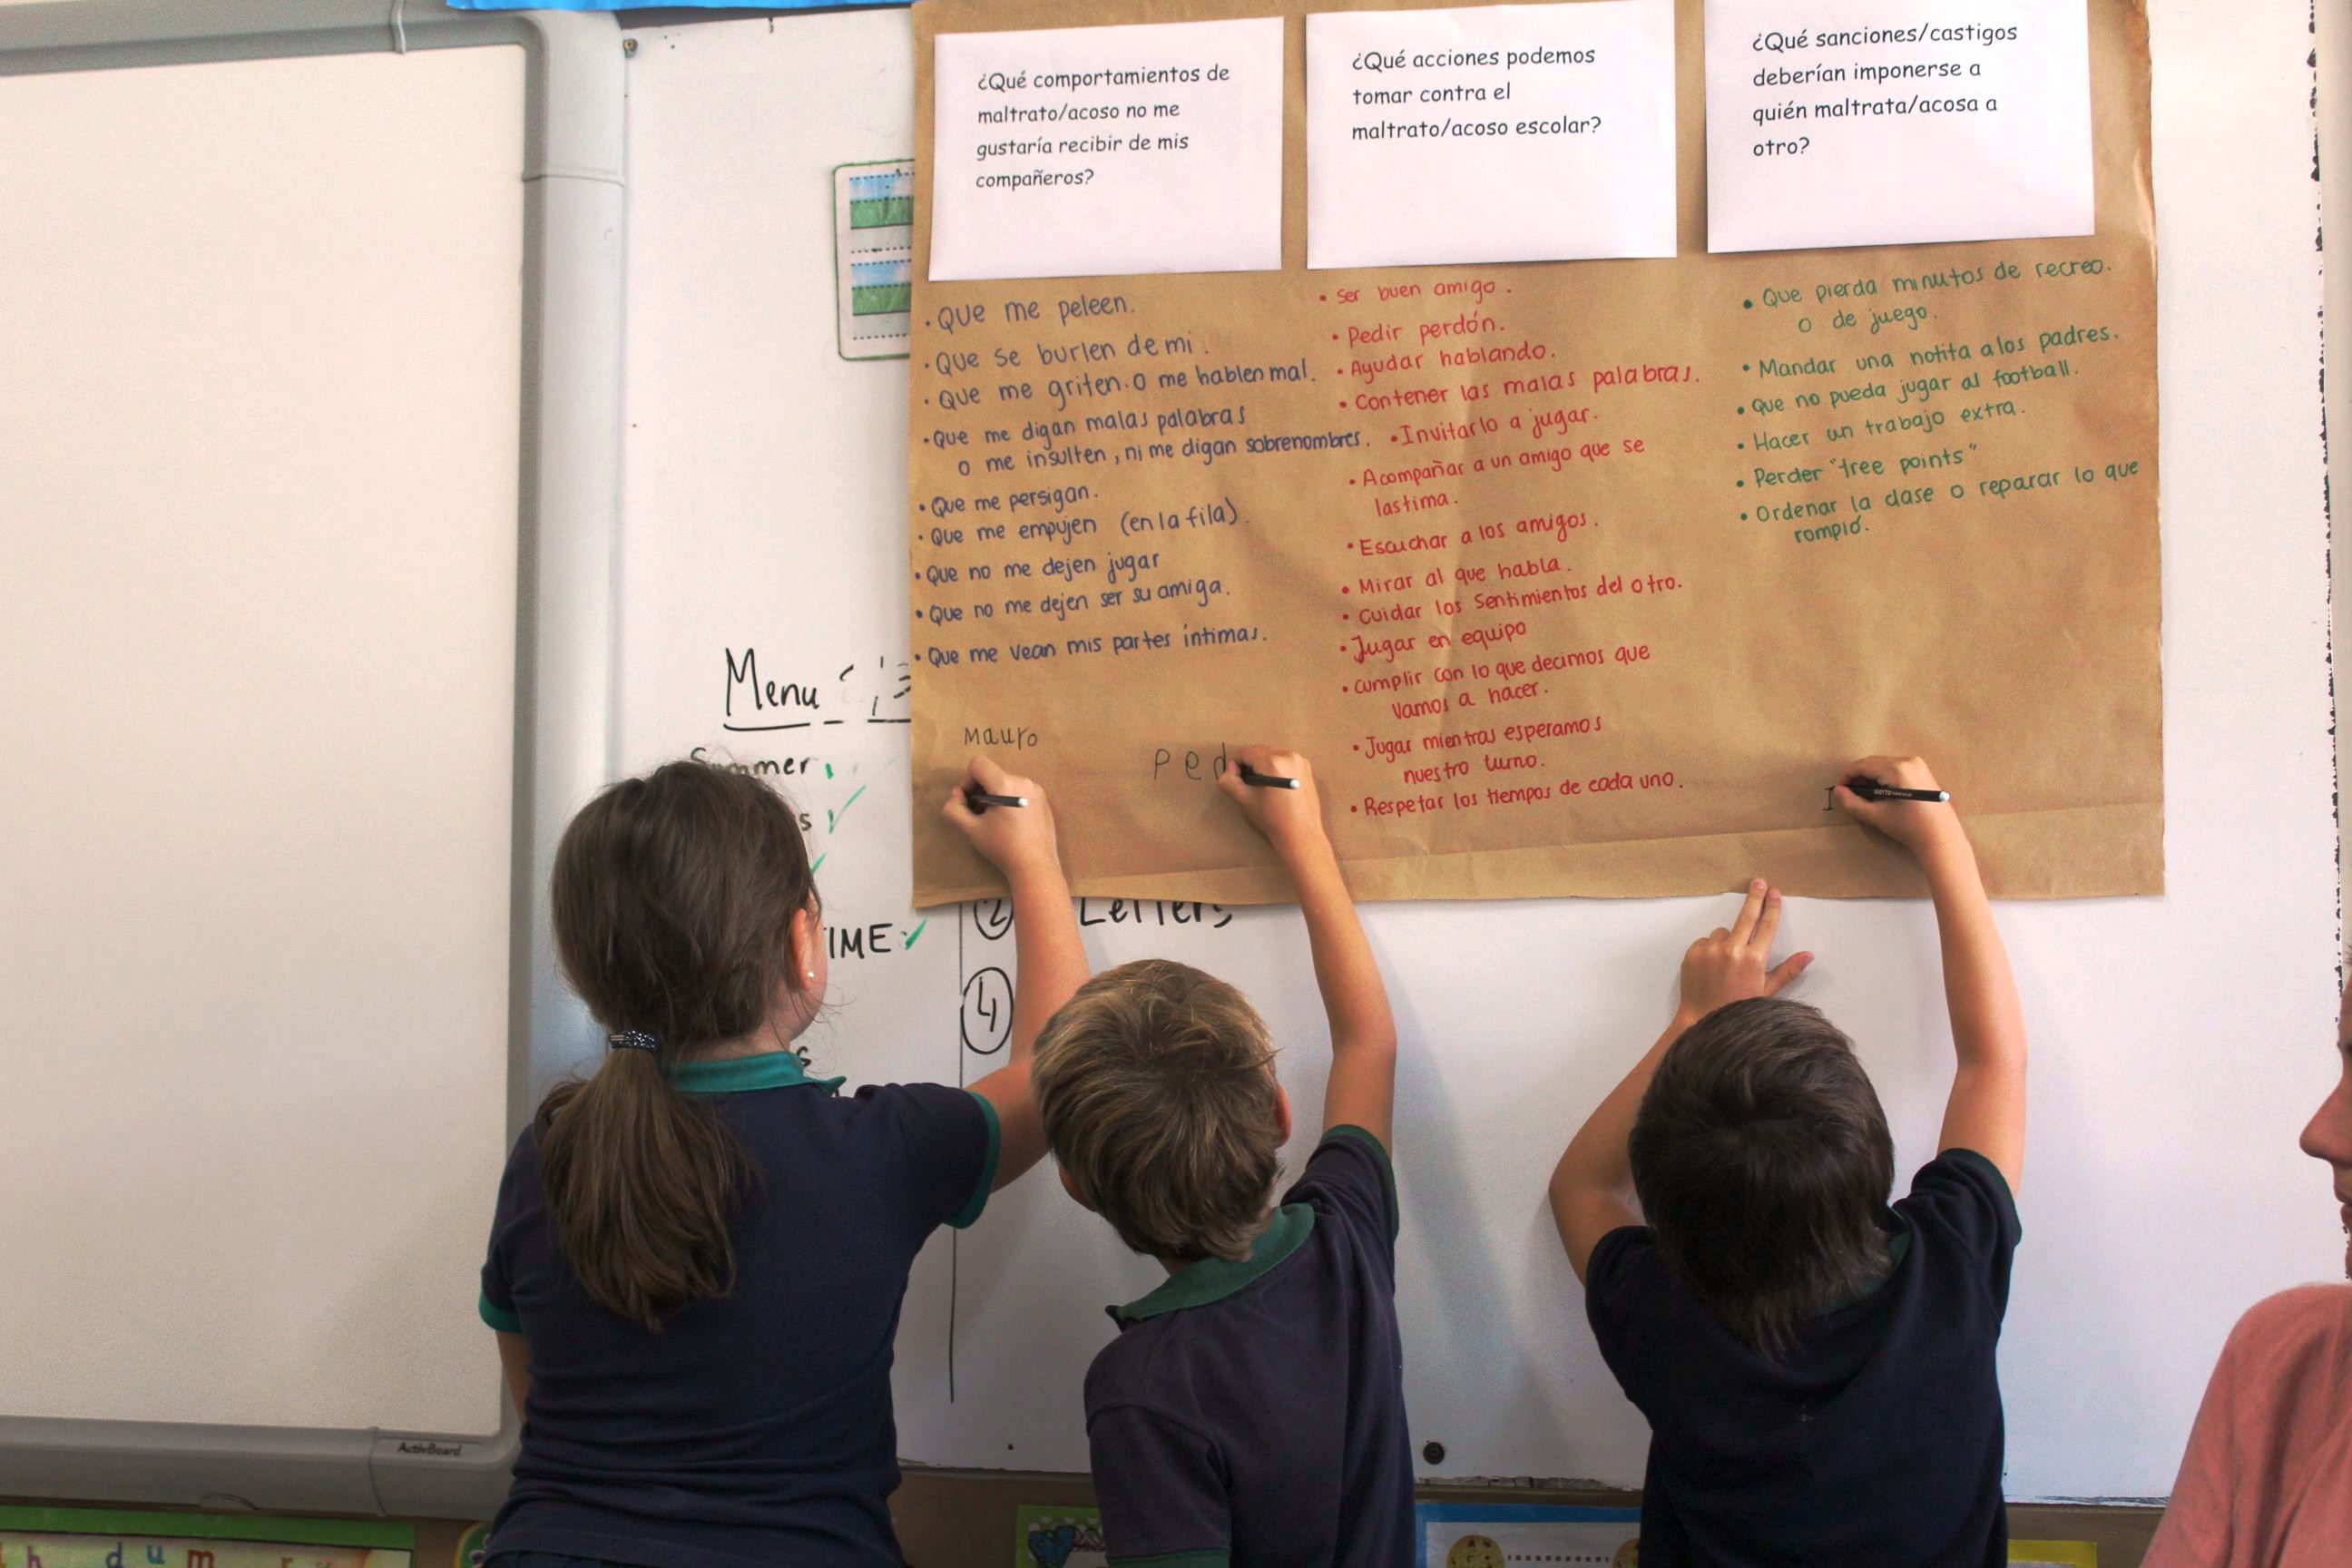 ¿Qué comportamientos de
maltrato/acoso no me
gustaría recibir de mis
compañeros?
¿Qué acciones podemos
tomar contra el
maltrato/acoso escolar?
¿Qué sanciones/castigos
deberían imponerse a
quién maltrata/acosa a
otro?
• Que me peleen.
• Que se burlen de mi.
• Que me griten. O me hablen mal.
• Que me digan malas palabras
o me insulten, ni me digan sobrenombres.
• Que me persigan.
• Que me empujen (en la fila).
• Que no me dejen jugar
• Que no me dejen ser su amiga.
• Que me vean mis partes íntimas.
• Ser buen amigo.
• Pedir perdón.
• Ayudar hablando.
• Contener las malas palabras.
• Invitarlo a jugar.
• Acompañar a un amigo que se
lastima.
• Escuchar a los amigos.
• Mirar al que habla.
• Cuidar los sentimientos del otro.
• Jugar en equipo
• Cumplir con lo que decimos que
vamos a hacer.
• Jugar mientras esperamos
nuestro turno.
• Respetar los tiempos de cada uno.
• Que pierda minutos de recreo.
o de juego.
• Mandar una notita a los padres.
• Que no pueda jugar al football.
• Hacer un trabajo extra.
• Perder "tree points"
• Ordenar la clase o reparar lo que
rompió.
Mauro
Ped
I
Menu
IME
2 Letters
4
ActivBoard
h d u m r